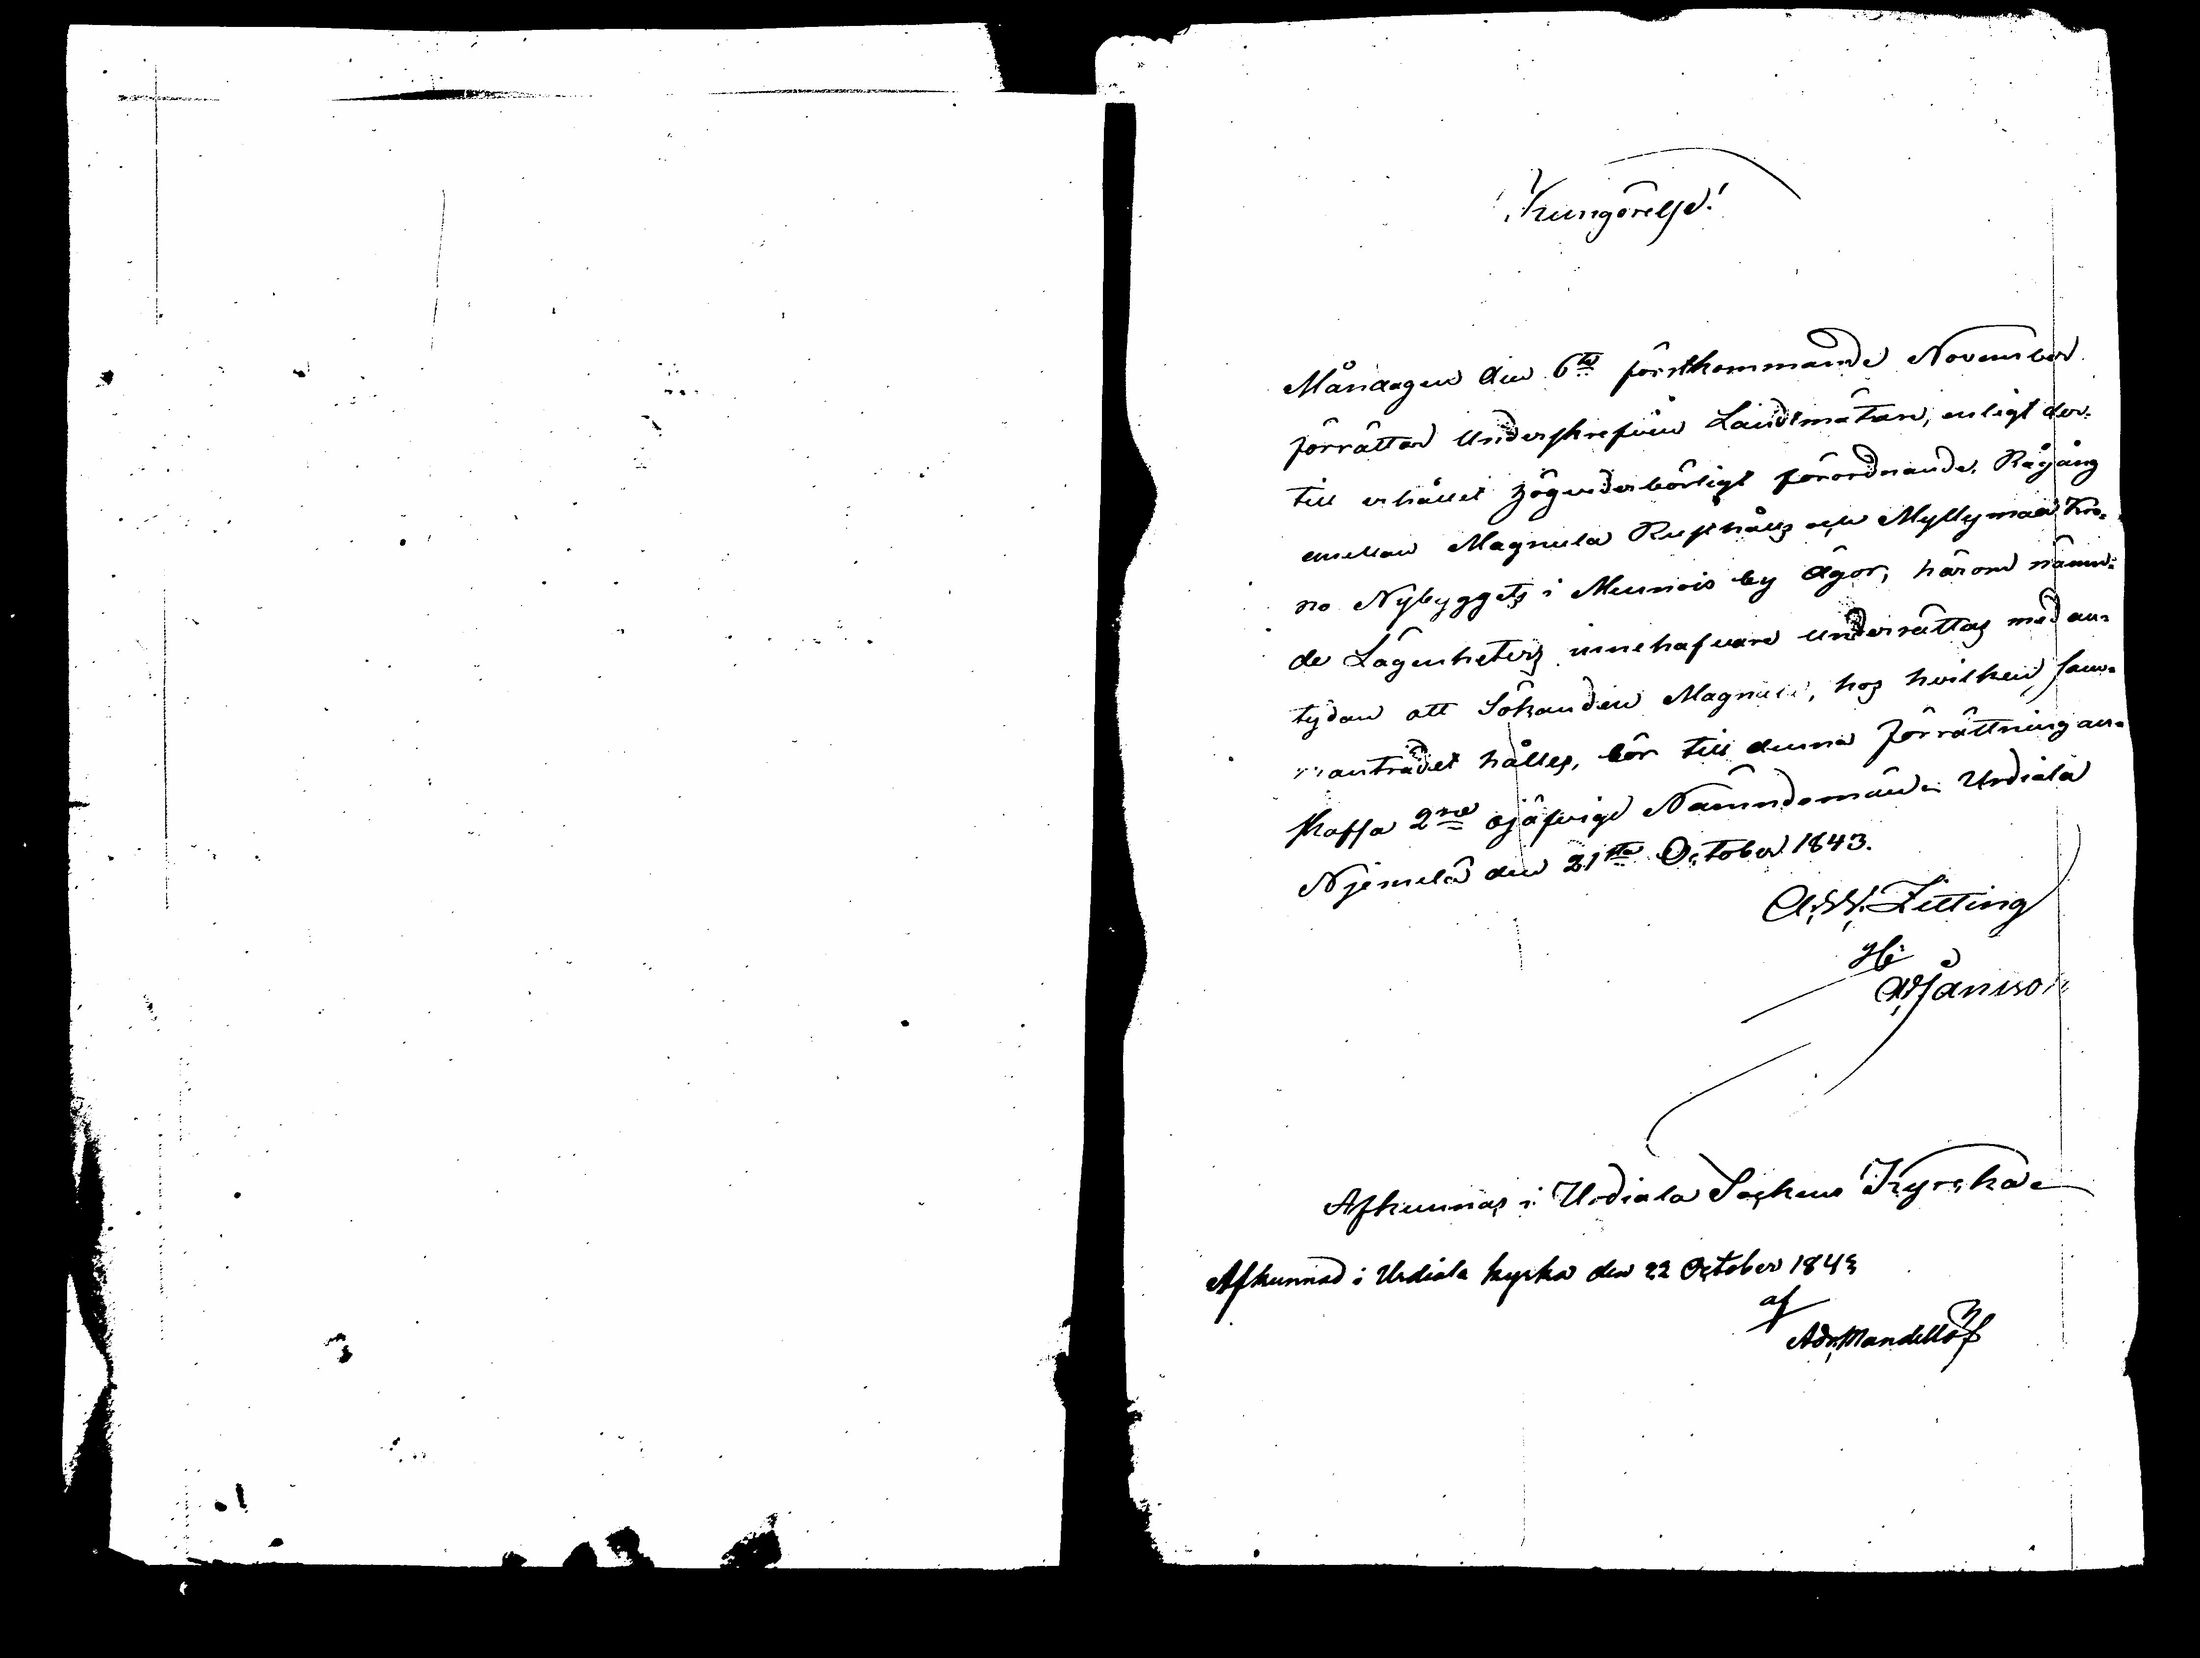 Kungörelse!
Måndagen den 6te förstkommande November
förrättar Underskrefven Landtmätare, enligt der-
till erhållet högvederbörligt förordnande, Rågång
emellan Magnula Rusthålls och Myllymaa Kro-
no Nybyggets i Menois by ägor, härom nämn-
de Lägenheters innehafvare underrättas med an-
tydan att Sökanden Magnula, hos hvilken sam-
manträdet hålles, bör till denna förrättning an-
skaffa 2ne ojäfvige Nämndemän. Urdiala
Njemelä den 21sta October 1843.
A. W. Zitting
Afkunnas i Urdiala Sockens Kyrcka
Afkunnad i Urdiala kyrka den 22 October 1843
af
Adr. Mandellöf